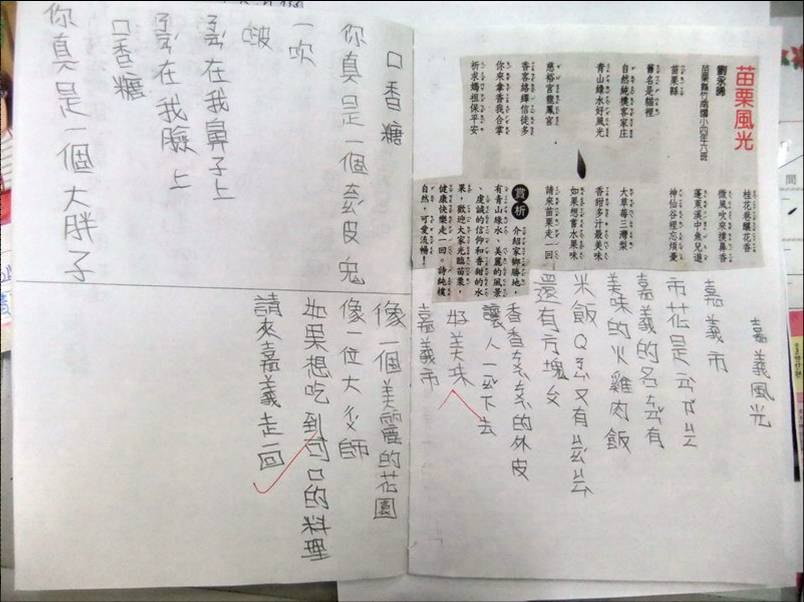 苗栗風光
苗栗縣竹南國小四年六班
苗栗縣
舊名是貓裡
自然純樸客家庄
青山綠水好風光
慈裕宮龍鳳宮
香客絡繹信徒多
你來拿香我合掌
祈求媽祖保平安
桂花巷飄花香
微風吹來撲鼻香
蓬萊溪中魚兒遊
神仙谷裡忘煩憂
大草莓三灣梨
香甜多汁最美味
如果想嘗水果味
請來苗栗走一回
賞析 介紹家鄉勝地，
有青山綠水、美麗的風景
、虔誠的信仰和香甜的水
果，歡迎大家光臨苗栗，
健康快樂走一回。詩純樸
自然，可愛流暢！
嘉義風光
嘉義市
市花是
嘉義的名有
美味的火雞肉飯
米飯Q又有
還有方塊
香香的外皮
讓人一下去
好美味
嘉義市
像一個美麗的花園
像一位大廚師
如果想吃到可口的料理
請來嘉義走一回
口香糖
你真是一個皮鬼
一吹
啵
在我鼻子上
在我臉上
口香糖
你真是一個大胖子